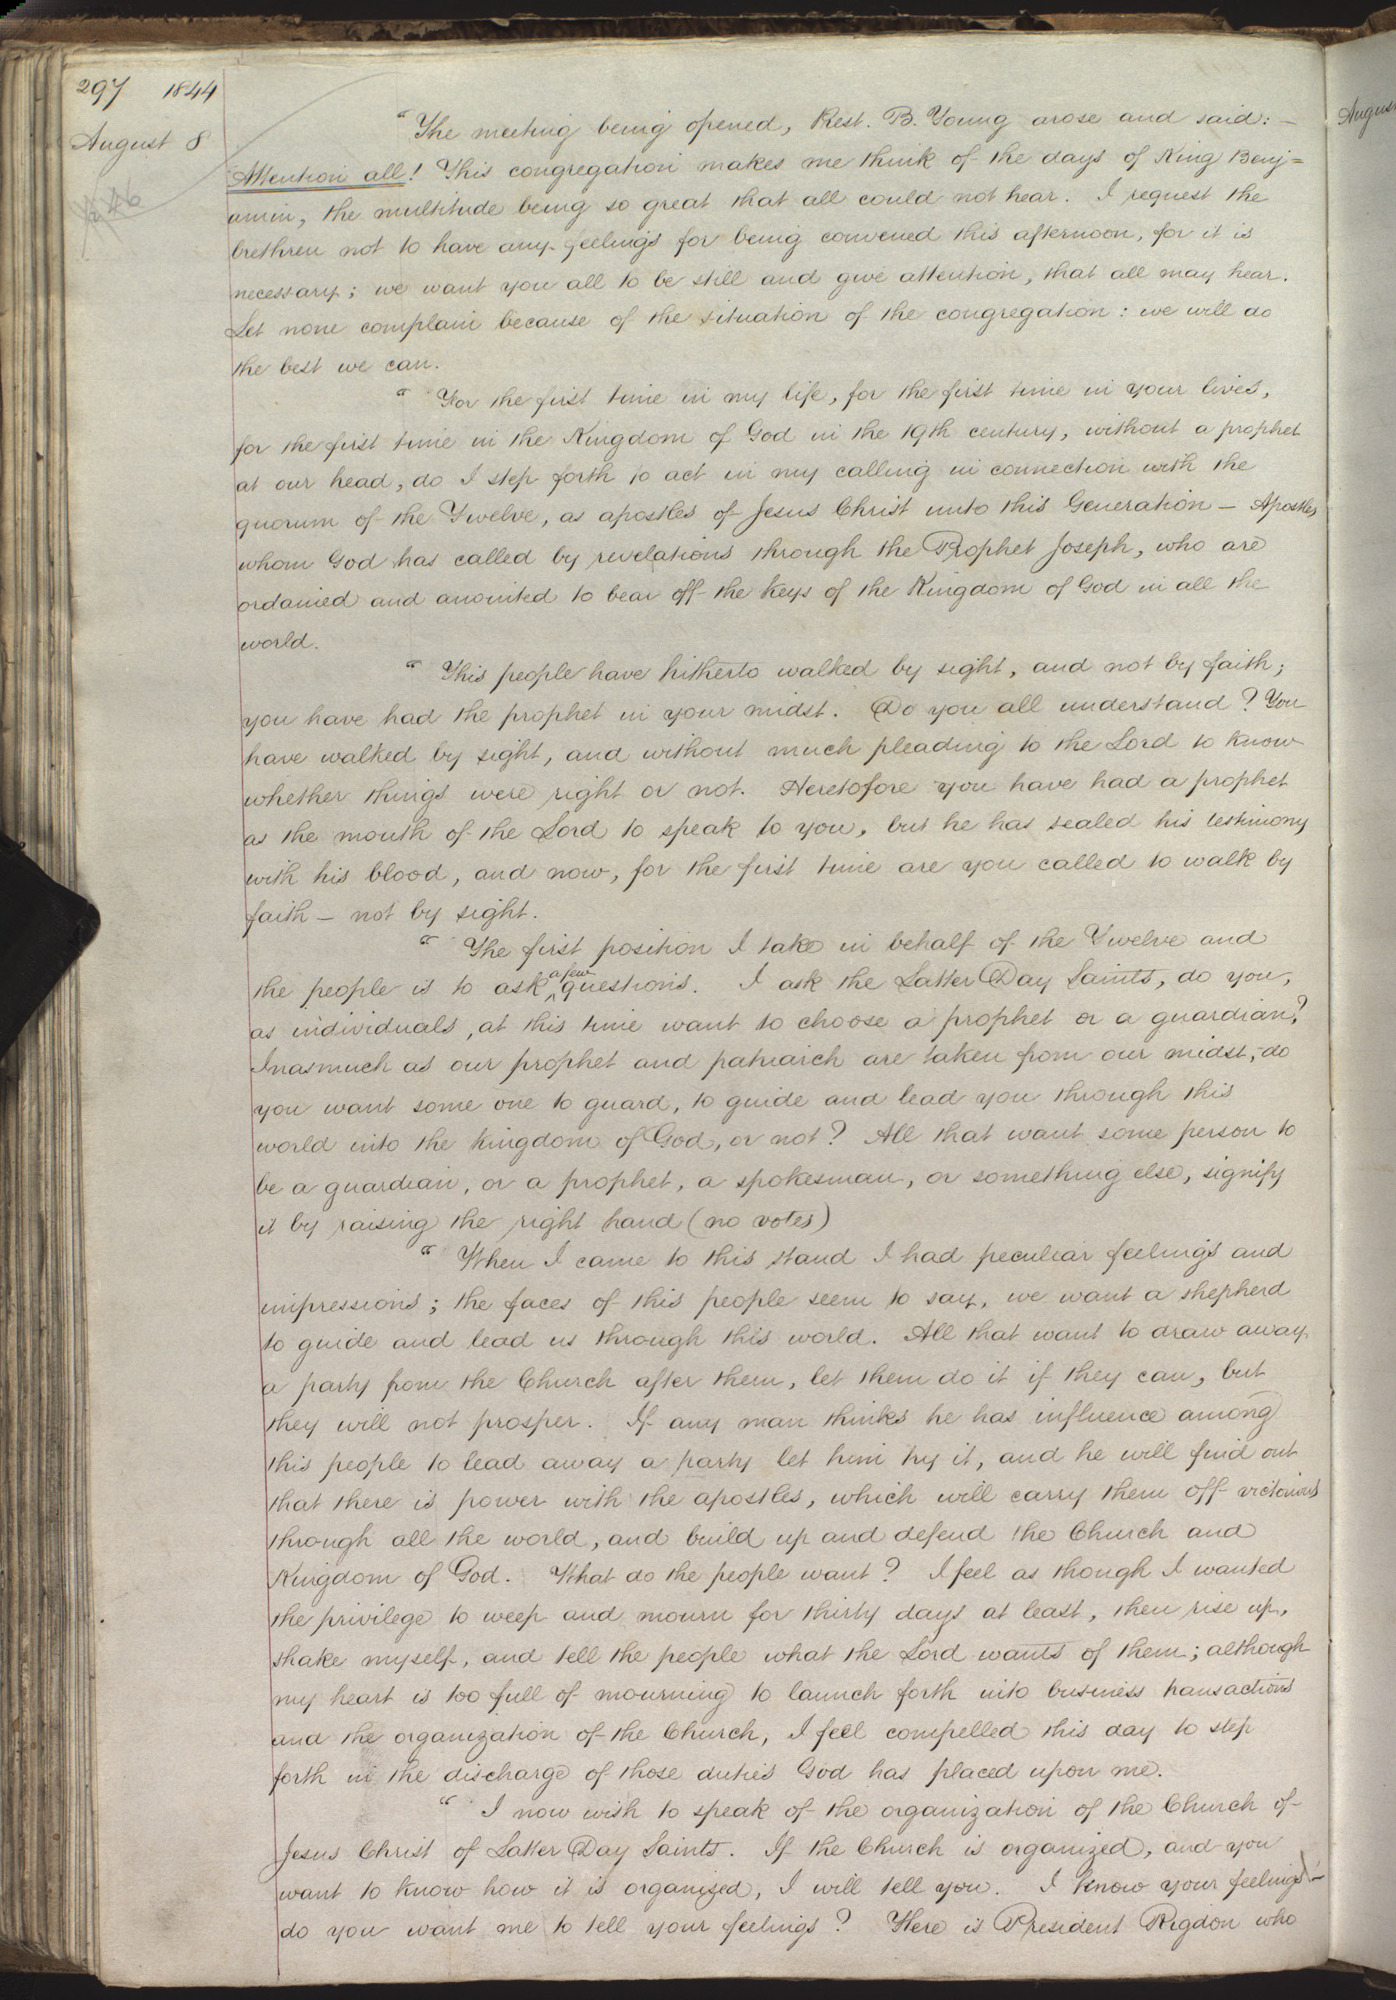 297 1844
August 8
"The meeting being opened, Prest. B. Young arose and said:—
Attention all! This congregation makes me think of the days of King Benj=
amin, the multitude being so great that all could not hear. I request the
brethren not to have any feelings for being convened this afternoon, for it is
necessary; we want you all to be still and give attention, that all may hear.
Let none complain because of the situation of the congregation: we will do
the best we can.
"For the first time in my life, for the first time in your lives,
for the first time in the Kingdom of God in the 19th century, without a prophet
at our head, do I step forth to act in my calling in connection with the
quorum of the Twelve, as apostles of Jesus Christ unto this Generation — Apostles
whom God has called by revelations through the Prophet Joseph, who are
ordained and anointed to bear off the keys of the Kingdom of God in all the
world.
"This people have hitherto walked by sight, and not by faith;
you have had the prophet in your midst. Do you all understand? You
have walked by sight, and without much pleading to the Lord to know
whether things were right or not. Heretofore you have had a prophet
as the mouth of the Lord to speak to you, but he has sealed his testimony
with his blood, and now, for the first time are you called to walk by
faith — not by sight.
"The first position I take in behalf of the Twelve and
the people is to ask a few questions. I ask the Latter Day Saints, do you,
as individuals, at this time want to choose a prophet or a guardian?
Inasmuch as our prophet and patriarch are taken from our midst, do
you want some one to guard, to guide and lead you through this
world into the kingdom of God, or not? All that want some person to
be a guardian, or a prophet, a spokesman, or something else, signify
it by raising the right hand (no votes)
"When I came to this stand I had peculiar feelings and
impressions; the faces of this people seem to say, we want a shepherd
to guide and lead us through this world. All that want to draw away
a party from the Church after them, let them do it if they can, but
they will not prosper. If any man thinks he has influence among
this people to lead away a party let him try it, and he will find out
that there is power with the apostles, which will carry them off victorious
through all the world, and build up and defend the Church and
Kingdom of God. What do the people want? I feel as though I wanted
the privilege to weep and mourn for thirty days at least, then rise up,
shake myself, and tell the people what the Lord wants of them; although
my heart is too full of mourning to launch forth into business transactions
and the organization of the Church, I feel compelled this day to step
forth in the discharge of those duties God has placed upon me.
"I now wish to speak of the organization of the Church of
Jesus Christ of Latter Day Saints. If the Church is organized, and you
want to know how it is organized, I will tell you. I know your feelings—
do you want me to tell your feelings? Here is President Rigdon who